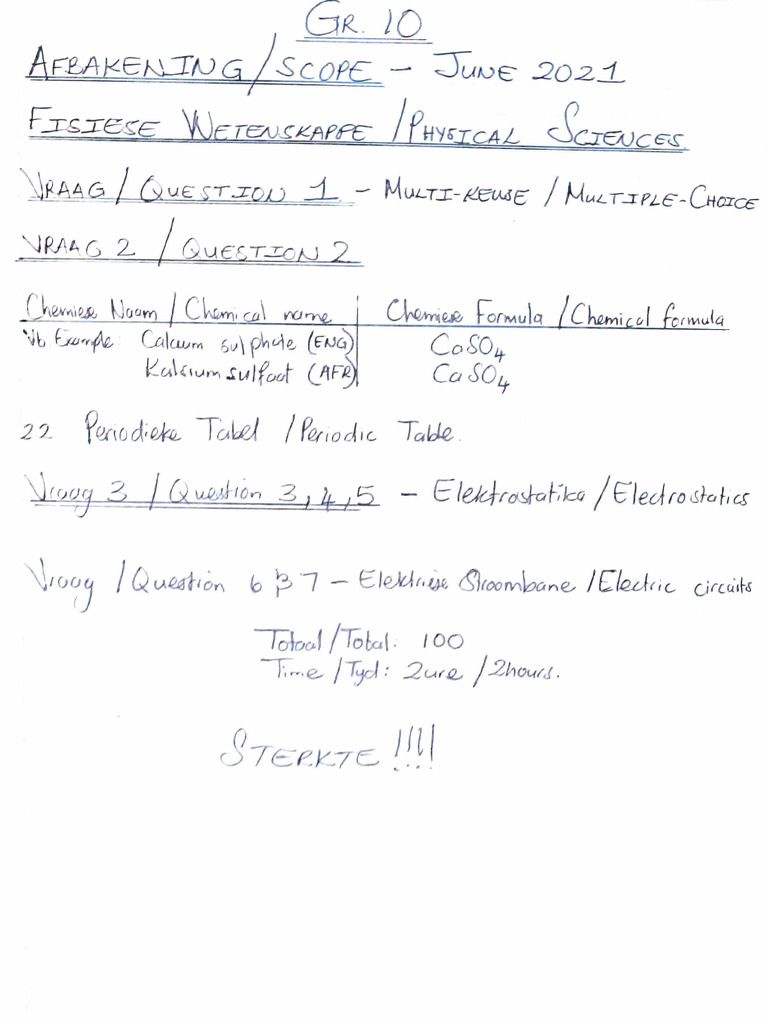 GR. 10
AFBAKENING/SCOPE - JUNE 2021
FISIESE WETENSKAPPE /PHYSICAL SCIENCES.
VRAAG/QUESTION 1 - MULTI-KEUSE / MULTIPLE-CHOICE
VRAAG 2 / QUESTION 2
Chemiese Naam / Chemical name | Chemiese Formula / Chemical formula
Vb Example: Calcium sulphate (ENG) | CaSO4
Kalsiumsulfaat (AFR) | CaSO4
22 Periodieke Tabel /Periodic Table.
Vraag 3 / Question 3, 4, 5 - Elektrostatika / Electrostatics
Vraag / Question 6 & 7 - Elektriese Stroombane /Electric circuits
Totaal/Total: 100
Time /Tyd: 2ure / 2hours.
STERKTE !!!!